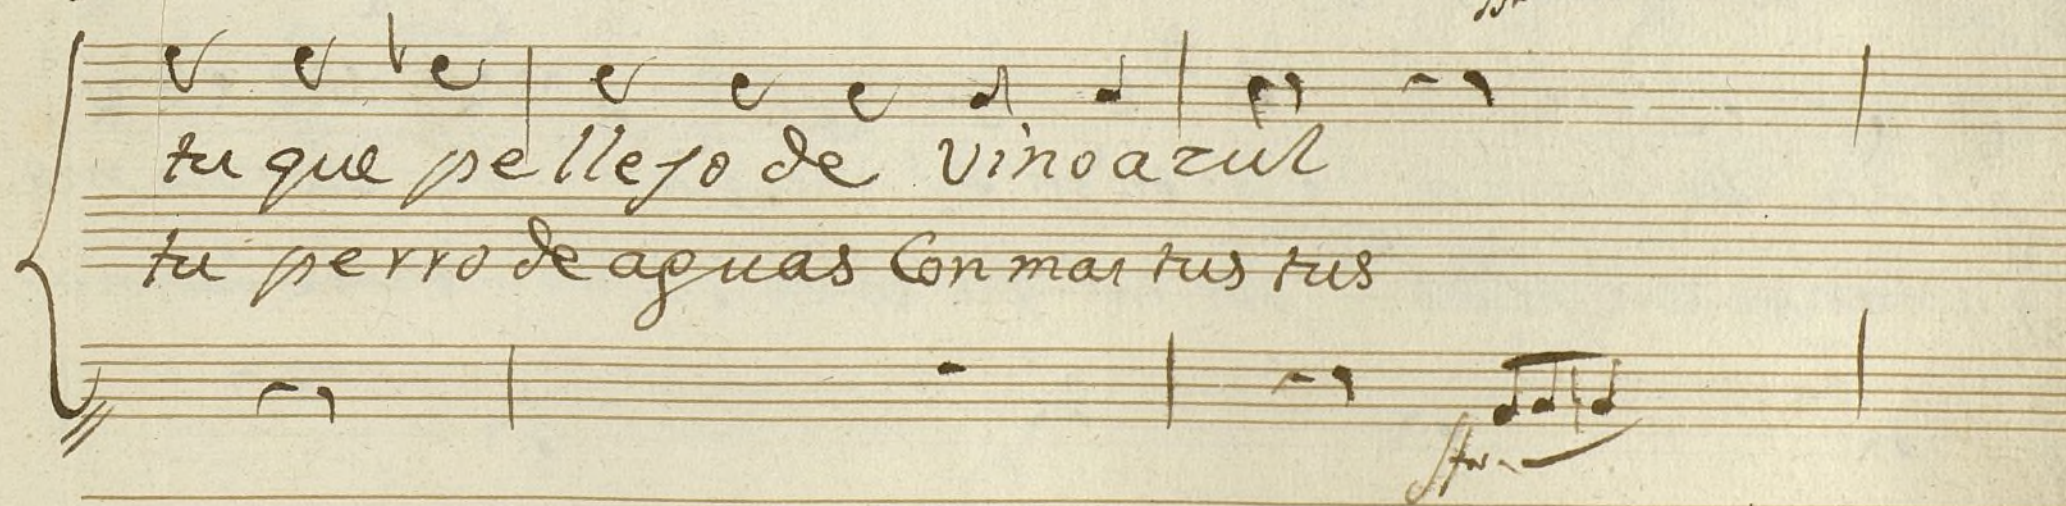 tu que pellejo de vino azul
tu perro de aguas Con mar tus tus
sfor